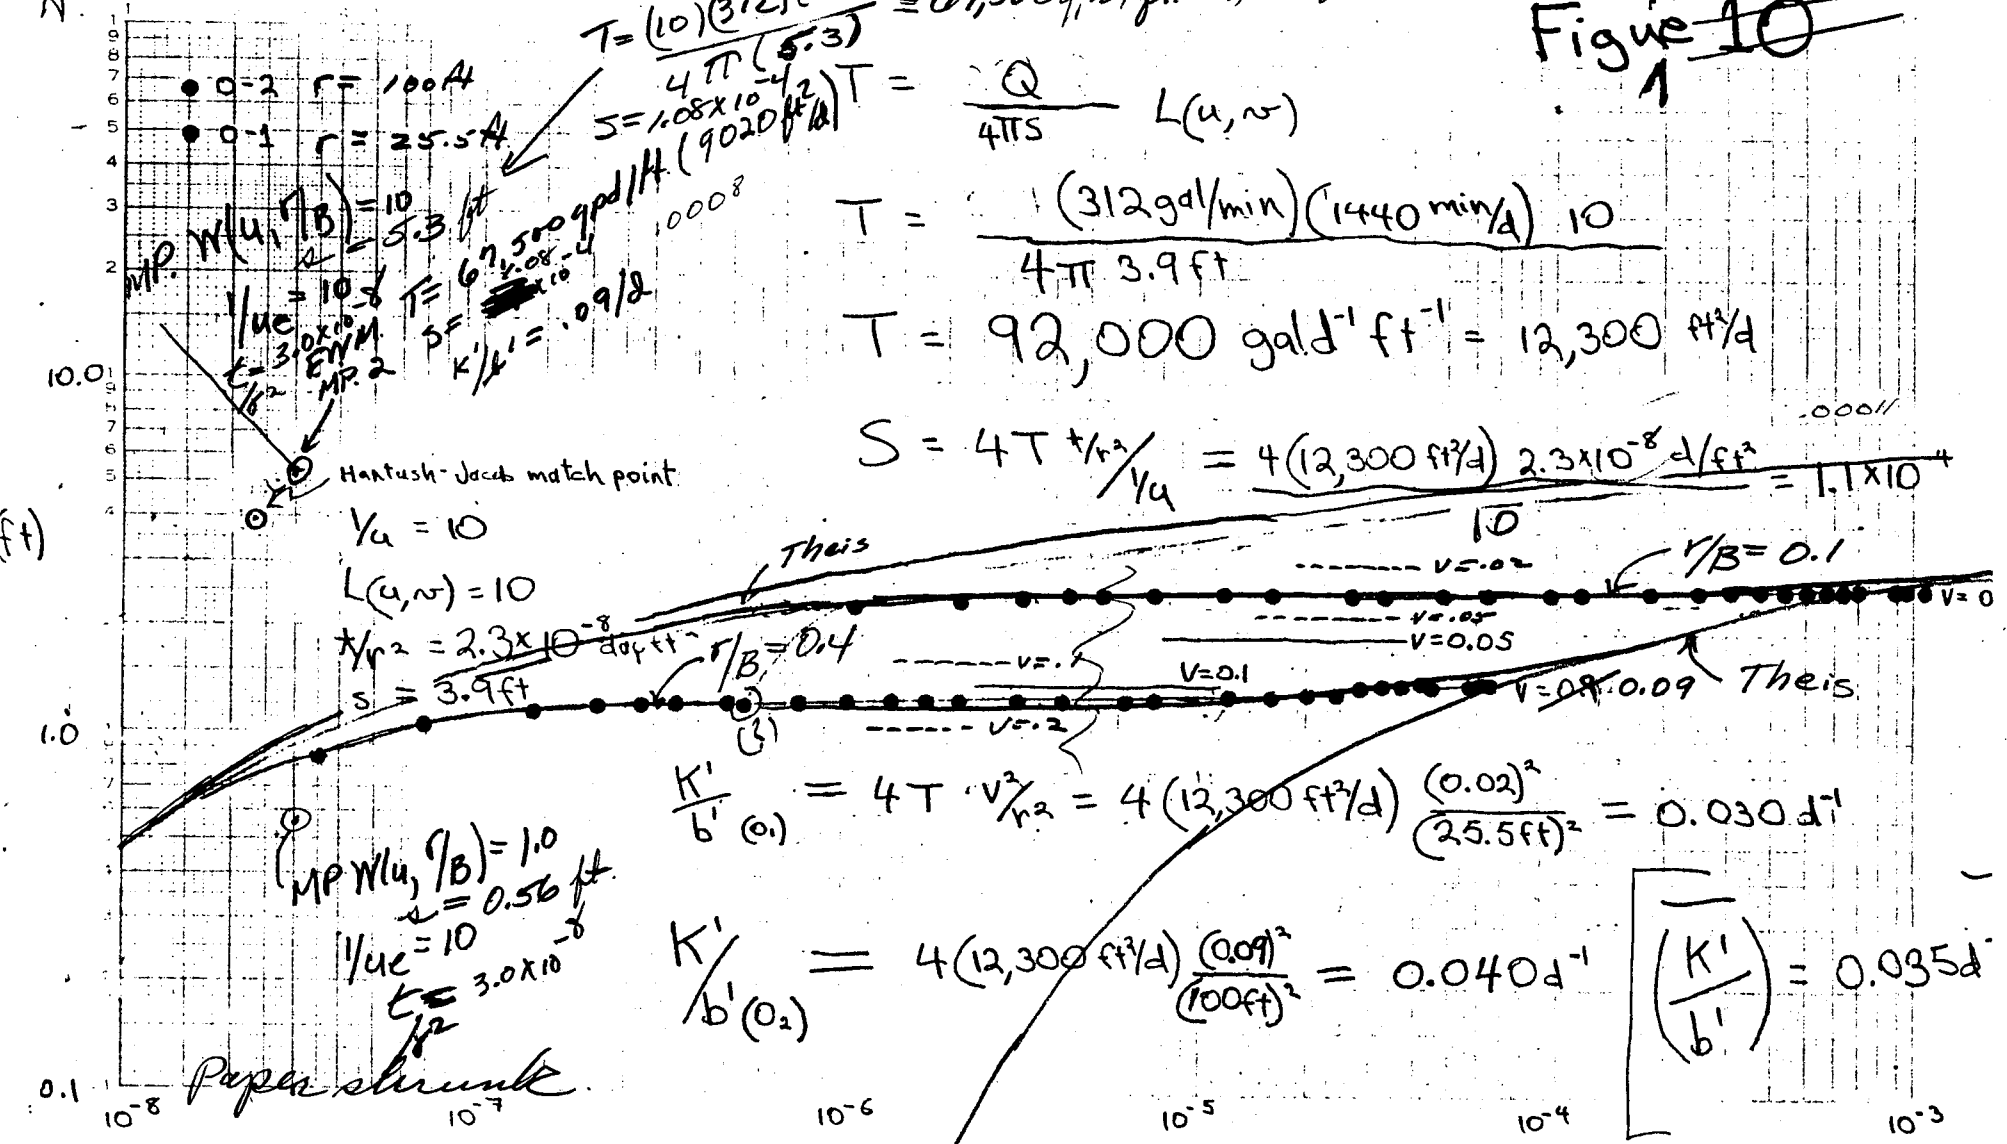 Figure 10
1
● O-2 r = 100 ft
● O-1 r = 25.5 ft
T = (10)(312)
4π (5.3)
S = 1.08×10⁻⁴
MP. W(u, r/B) = 10
s = 5.3 ft
1/ue = 10
t/r² = 3.0×10⁻⁸
EWM
MP. 2
T = 67,500 gpd/ft (9020 ft²/d)
S = 1.08×10⁻⁴
K'/b' = .09/d
.0008
T = Q/4πs L(u,v)
T = (312 gal/min)(1440 min/d) 10
4π 3.9ft
T = 92,000 gal d⁻¹ ft⁻¹ = 12,300 ft²/d
.00011
S = 4T t/r² / 1/u = 4(12,300 ft²/d) 2.3×10⁻⁸ d/ft² / 10 = 1.1×10⁻⁴
Hantush-Jacob match point
1/u = 10
L(u,v) = 10
t/r² = 2.3×10⁻⁸ day ft⁻²
s = 3.9ft
Theis
v=.02
r/B = 0.1
v=0
v=.05
v=0.05
r/B = 0.4
v=.1
v=0.1
v=0.09
Theis
v=.2
(3)
K'/b' (O₁) = 4T v²/r² = 4(12,300 ft²/d) (0.02)²/(25.5ft)² = 0.030 d⁻¹
MP W(u, r/B) = 1.0
s = 0.56 ft.
1/ue = 10
t/r² = 3.0×10⁻⁸
K'/b' (O₂) = 4(12,300 ft²/d) (0.09)²/(100ft)² = 0.040 d⁻¹
(K'/b') = 0.035d
Paper shrunk.
10.0
1.0
0.1
ft)
10⁻⁸ 10⁻⁷ 10⁻⁶ 10⁻⁵ 10⁻⁴ 10⁻³